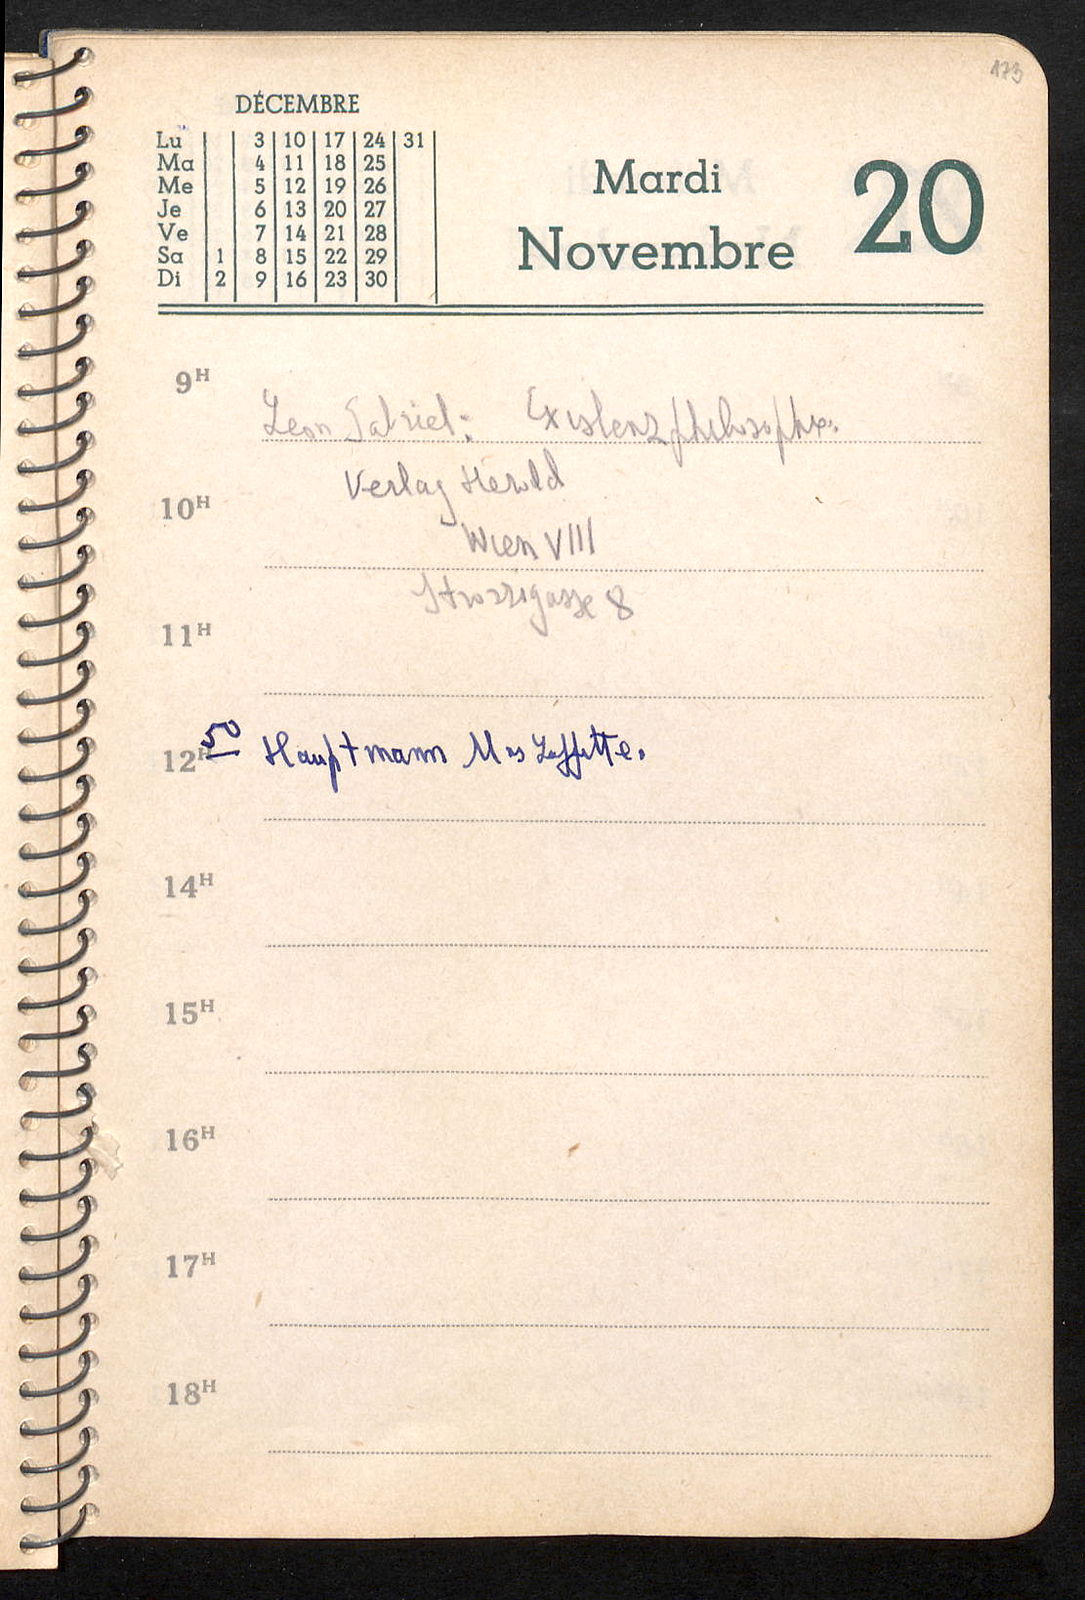 173
DÉCEMBRE
Lu 3 10 17 24 31
Ma 4 11 18 25
Me 5 12 19 26
Je 6 13 20 27
Ve 7 14 21 28
Sa 1 8 15 22 29
Di 2 9 16 23 30
Mardi 20
Novembre
9H
Leon Gabriel: Existenzphilosophie.
Verlag Herold
10H
Wien VIII
Strozzigasse 8
11H
12H 50 Hauptmann Laffitte.
14H
15H
16H
17H
18H